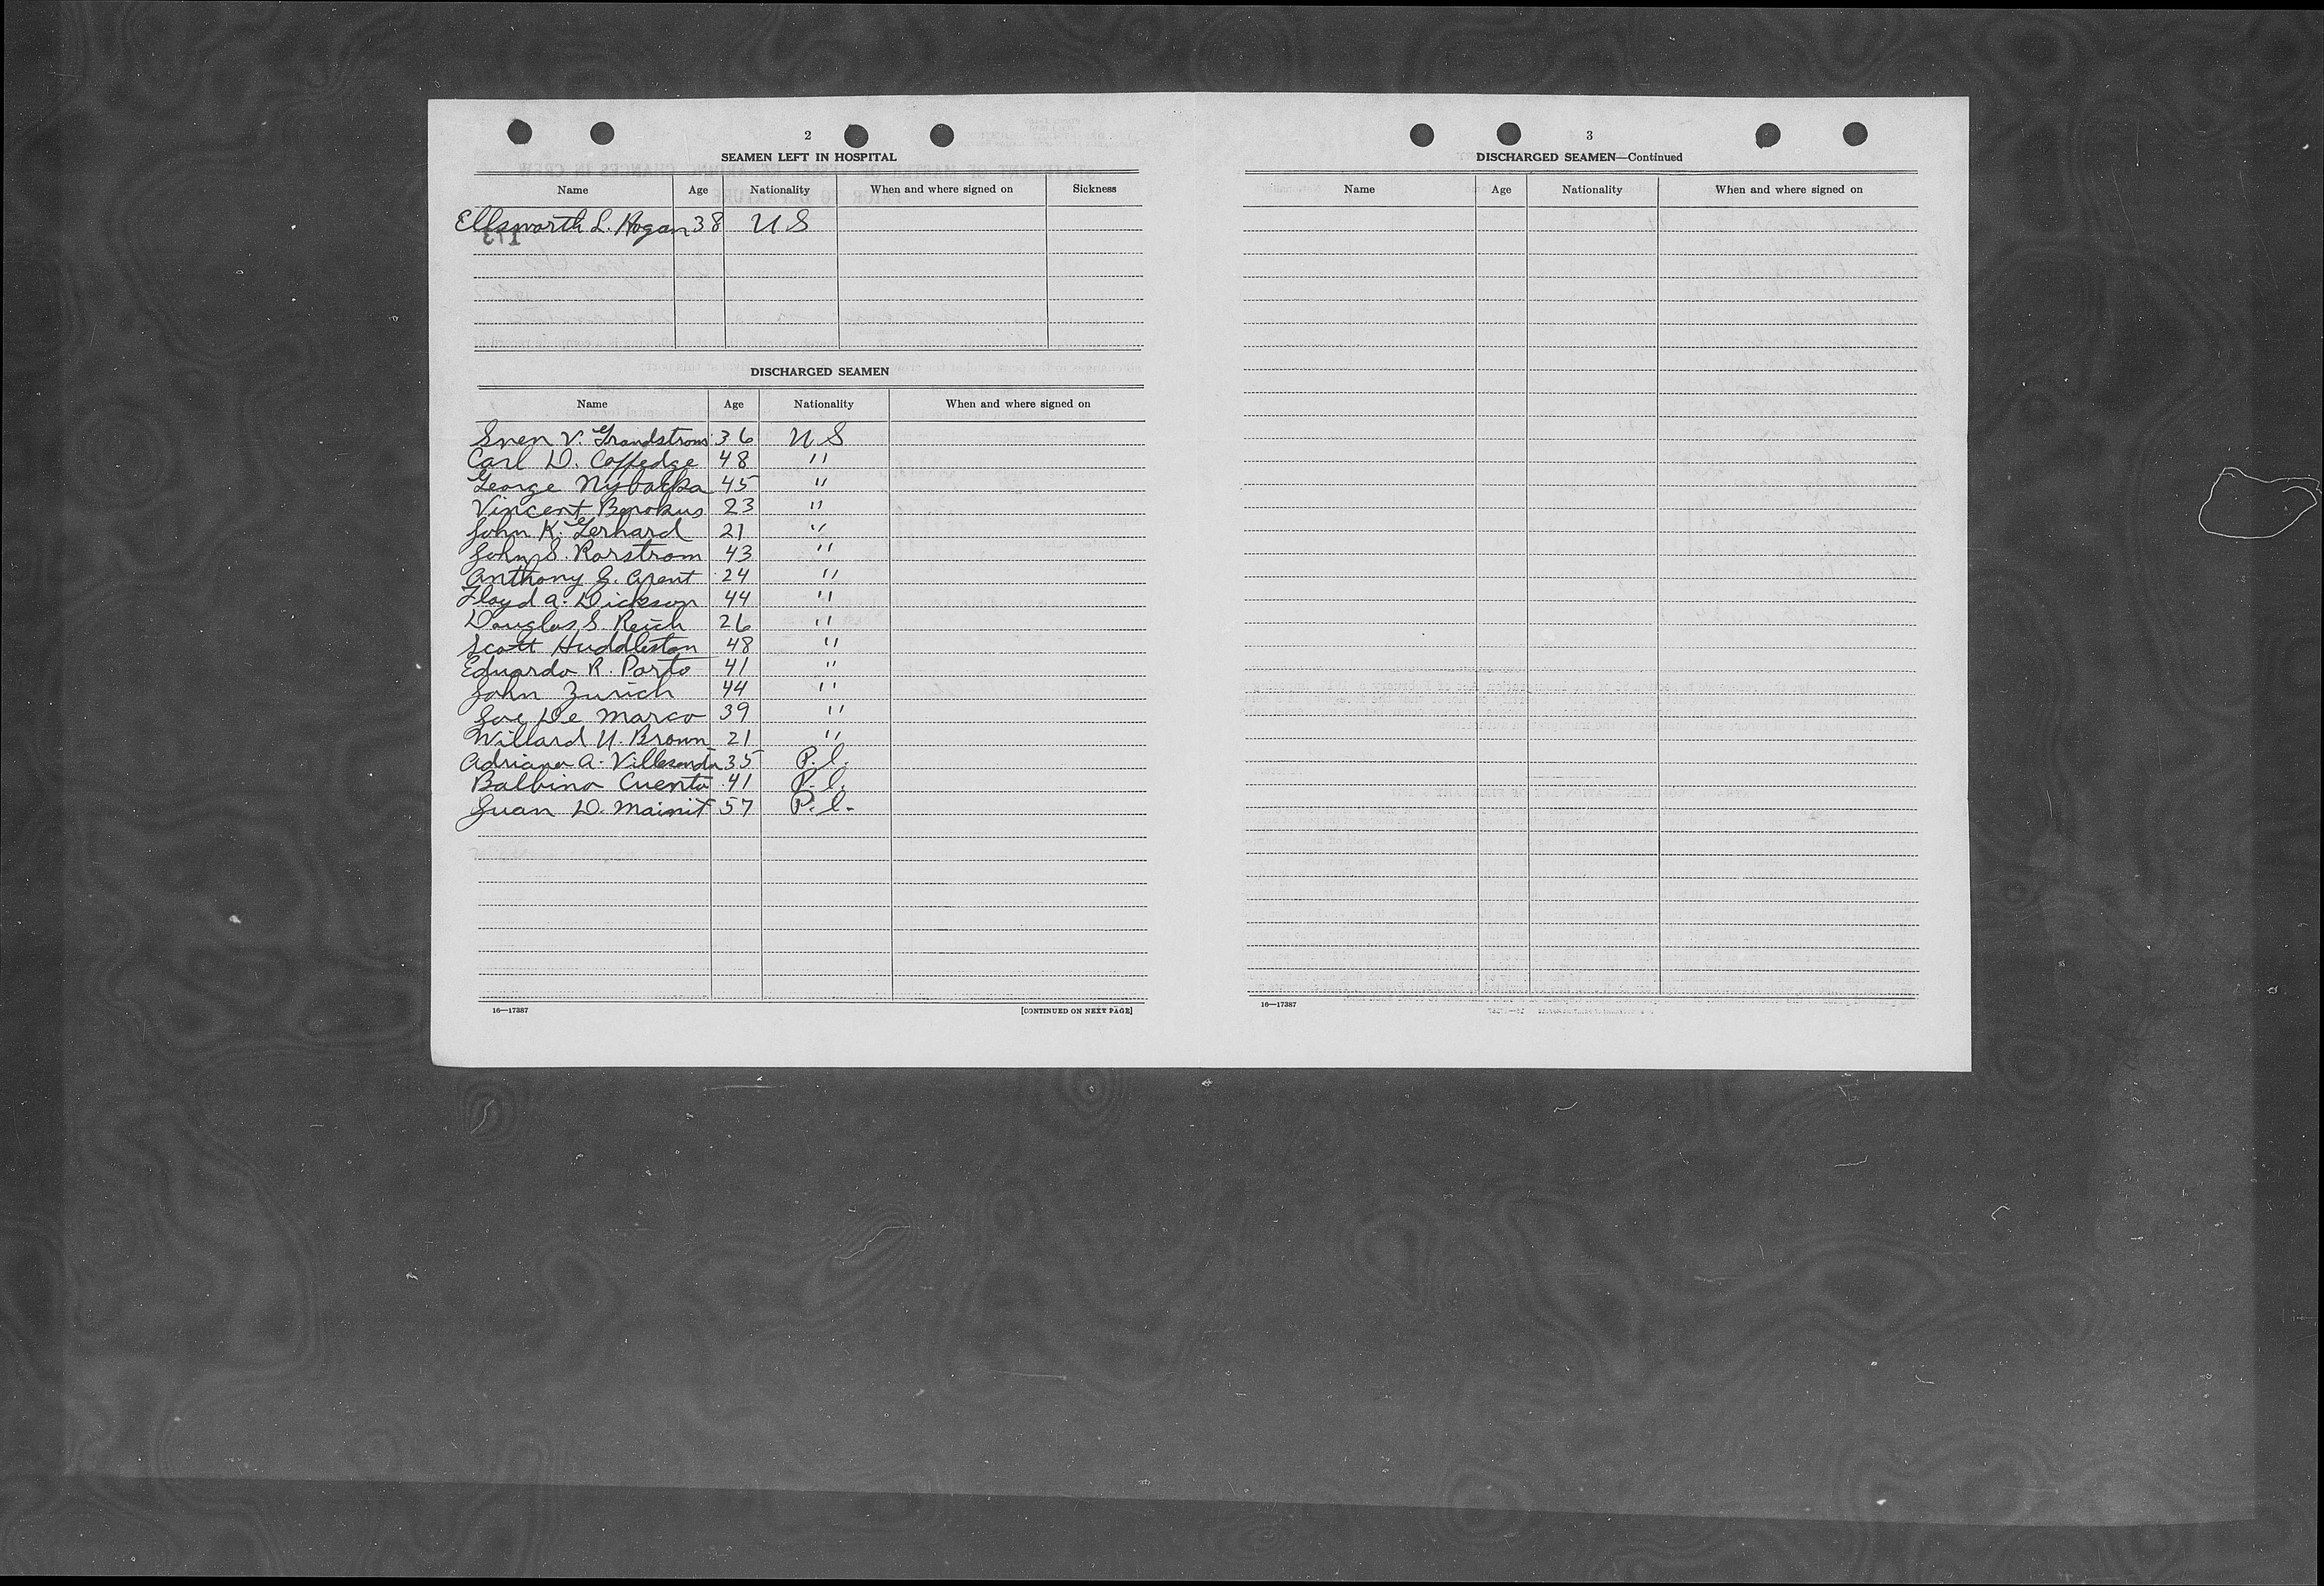 2
SEAMEN LEFT IN HOSPITAL
Name Age Nationality When and where signed on Sickness
Ellsworth L. Hogan 38 U S
DISCHARGED SEAMEN
Name Age Nationality When and where signed on
Sven V. Grandstrom 36 U S
Carl D. Coffedge 48 "
George Nybacka 45 "
Vincent 23 "
John K. Gerhard 21 "
John S. Rorstrom 43 "
Anthony G. Arent 24 "
Floyd A. Dickson 44 "
Douglas S. Reich 26 "
Scott Huddleston 48 "
Eduardo R. Porto 41 "
John Zurich 44 "
Joe De Marco 39 "
Willard U. Brown 21 "
A. 35 P.I.
Balbino Cuento 41 P.I.
Juan D. Mainit 57 P.I.
16—17387 [CONTINUED ON NEXT PAGE]
3
DISCHARGED SEAMEN—Continued
Name Age Nationality When and where signed on
16—17387